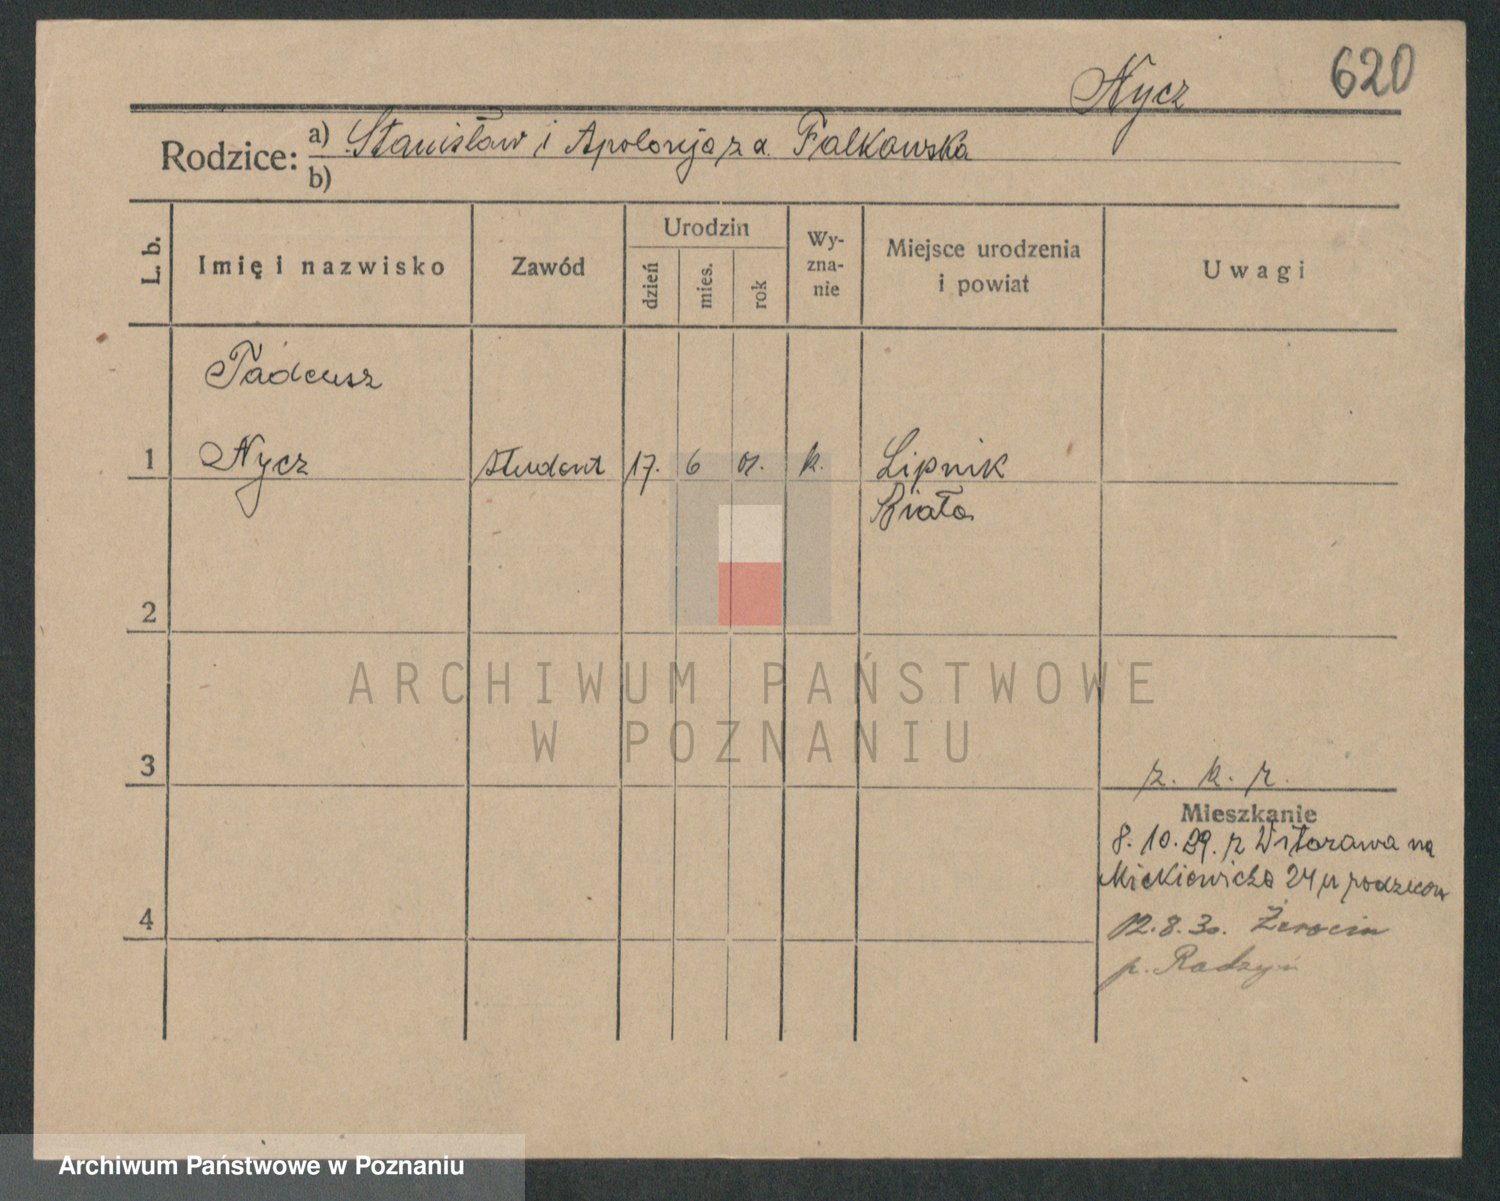 Nycz 620
Rodzice: a) Stanisław i Apolonja z d. Falkowska
b)
L. b.
Imię i nazwisko
Zawód
Urodzin
dzień mies. rok
Wy-
zna-
nie
Miejsce urodzenia
i powiat
Uwagi
Tadeusz
1 Nycz student 17. 6 01. k. Lipnik
Biała
2
ARCHIWUM PAŃSTWOWE
W POZNANIU
3 z. k. r.
Mieszkanie
8. 10. 29. z Witorawa na
Mickiewicza 24 u rodziców
4
12. 8. 30. Żerocin
p. Radzyń
Archiwum Państwowe w Poznaniu